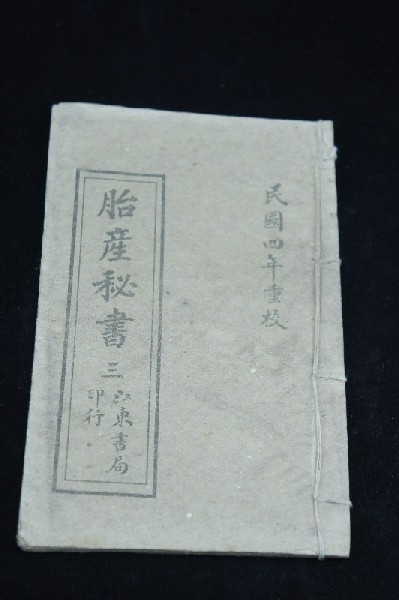 民國四年重校
胎産秘書 三
江東書局
印行